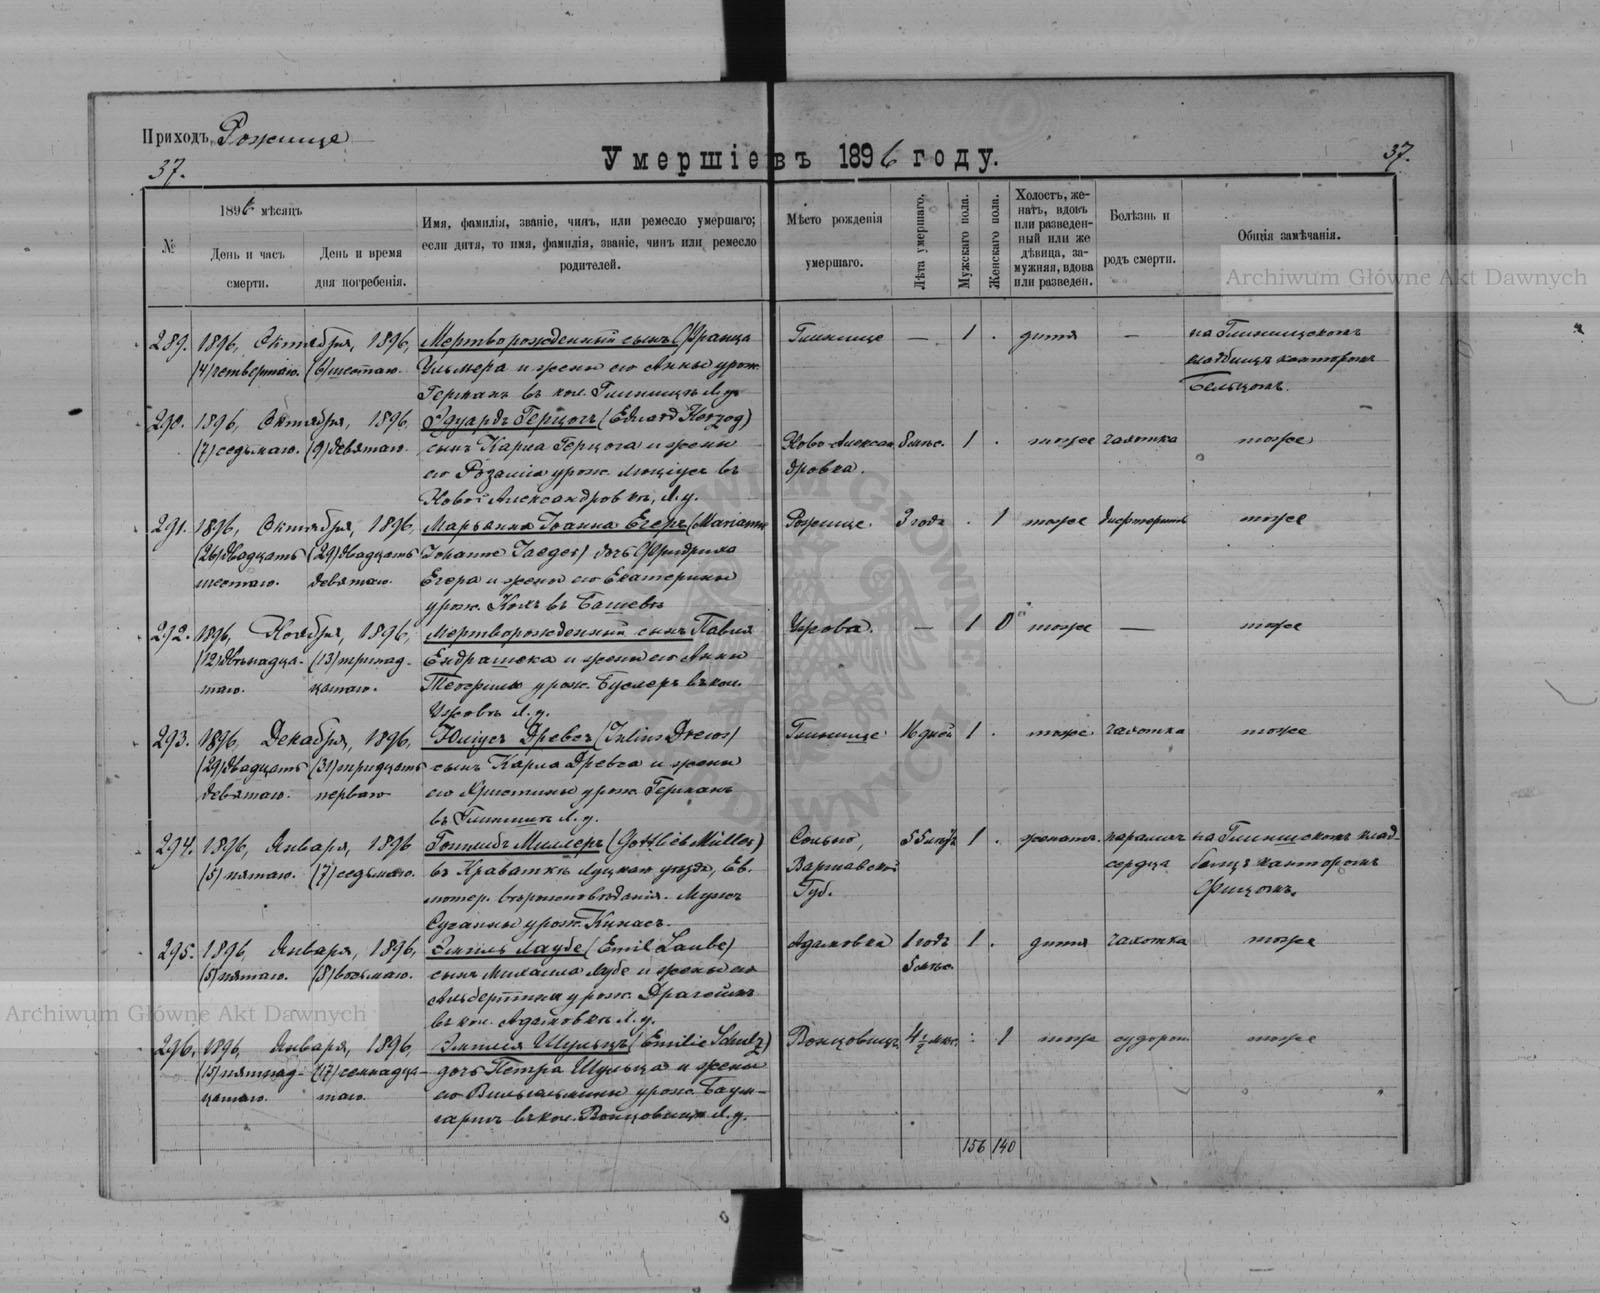 Приходъ Рожище
37.
Умершіе въ 1896 году.
37.
№
1896 мѣсяцъ
День и часъ смерти.
День и время дня погребенія.
Имя, фамилія, званіе, чинъ, или ремесло умершаго;
если дитя, то имя, фамилія, званіе, чинъ или ремесло
родителей.
Мѣсто рожденія
умершаго.
Лѣта умершаго.
Мужскаго пола.
Женскаго пола.
Холостъ, же-
натъ, вдовъ
или разведен-
ный или же
дѣвица, за-
мужняя, вдова
или разведен.
Болѣзнь и
родъ смерти.
Общія замѣчанія.
Archiwum Główne Akt Dawnych
289. 1896, Октября, 1896, Мертворожденный сынъ Франца Глинище — 1 . дитя — на Глинищскомъ
(4) четвертаго. (6) шестаго. и жены его Анны урож. кладбищѣ канторомъ
Германъ въ кол. Глинищѣ Л. у.
290. 1896, Октября, 1896, Эдуардъ Герцогъ (Eduard Herzog)
(7) седьмаго. (9) девятаго. сынъ Карла Герцога и жены Ново-Алексан- 1 . тоже чахотка тоже
его Розаліи урож. въ дровка.
Ново-Александровкѣ, Л. у.
291. 1896, Октября, 1896, Марьанна Іоанна Егеръ (Marianne Рожище 3 года . 1 тоже дифтеритъ тоже
(26) двадцать (29) двадцать Johanne Jaeger) дочь Фридриха
шестаго. девятаго. Егера и жены его Екатерины
урож. въ Башевѣ
292. 1896, Ноября, 1896, Мертворожденный сынъ Павла Ужова. — 1 0 тоже — тоже
(12) двѣнадца- (13) тринад- и жены его Анны
таго. цатаго. урож. въ кол.
Ужовѣ Л. у.
293. 1896, Декабря, 1896, Юліусъ Древсъ (Julius Drews) Глинище 16 дней 1 . тоже чахотка тоже
(29) двадцать (31) тридцать сынъ Карла Древса и жены
девятаго. перваго его Христины урож. Германъ
въ Глинищѣ Л. у.
294. 1896, Января, 1896 Готлибъ Миллеръ (Gottlieb Müller) 55 1 . женатъ. параличъ на Глинищскомъ клад-
(5) пятаго. (7) седьмаго. въ Краваткѣ Луцкаго уѣзда, Ев. Варшавской сердца бищѣ канторомъ
лютер. вѣроисповѣданія. Мужъ Губ.
Сусанны урож.
295. 1896, Января, 1896, Эмиль Лаубе (Emil Laube) Адамовка 1 годъ 1 . дитя чахотка тоже
(5) пятаго. (8) восьмаго. сынъ Михаила Лубе и жены его 5 мѣс.
Альбертины урож.
въ кол. Адамовкѣ Л. у.
Archiwum Główne Akt Dawnych
296. 1896, Января, 1896, Эмилія Шульцъ (Emilie Schulz) 4 1/2 мѣс. : 1 тоже судорог. тоже
(15) пятнад- (17) семнадца- дочь Петра Шульца и жены
цатаго. таго. его Вильгельмины урож. Баум-
гартъ въ кол. Л. у.
156 140